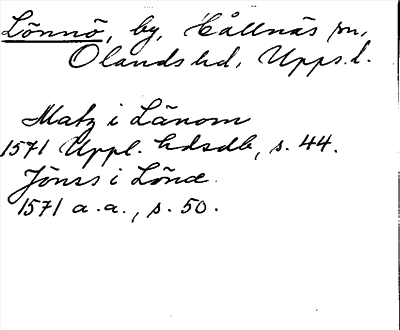 Lönnö, by, Hållnäs sn,
Olands hd, Upps. l.
Matz i Länom
1571 Uppl. hdsdb, s. 44.
Jöns i Lönö
1571 a.a., s. 50.